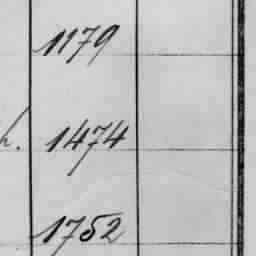 1179
h. 1474
1752